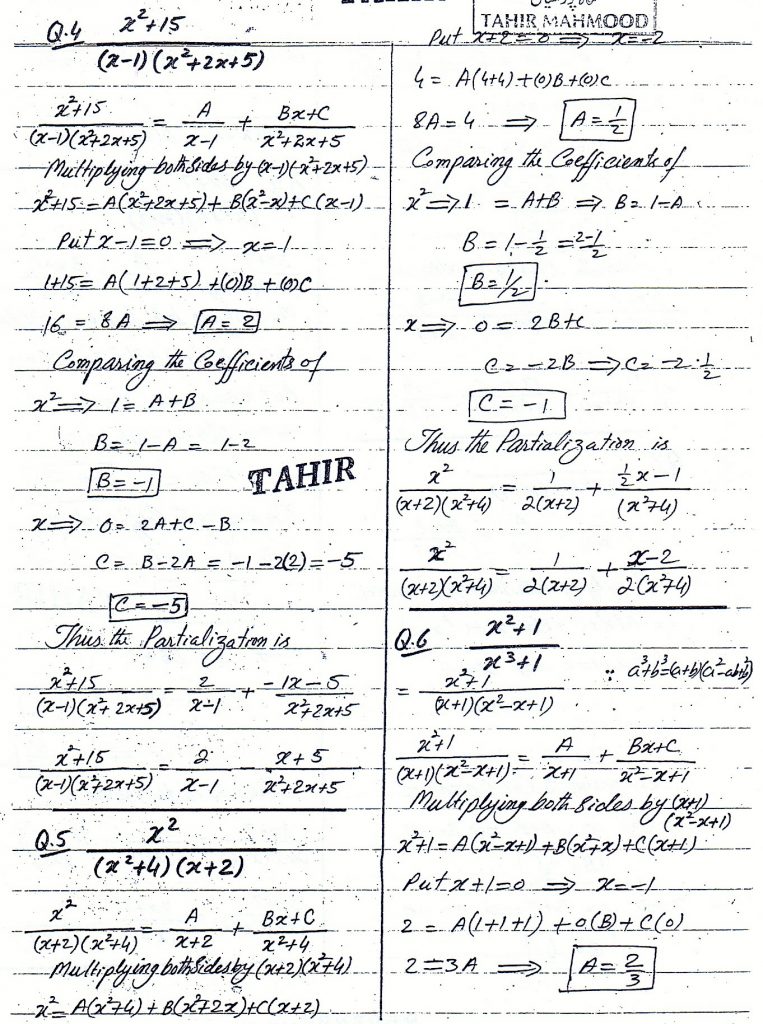 Q.4 x²+15 / (x-1)(x²+2x+5)
x²+15 / (x-1)(x²+2x+5) = A / x-1 + Bx+C / x²+2x+5
Multiplying both sides by (x-1)(x²+2x+5)
x²+15 = A(x²+2x+5) + B(x²-x) + C(x-1)
Put x-1=0 ⟹ x=1
1+15 = A(1+2+5) +(0)B +(0)C
16 = 8A ⟹ A=2
Comparing the Coefficients of
x² ⟹ 1 = A+B
B = 1-A = 1-2
B=-1
TAHIR
x ⟹ 0 = 2A+C-B
C = B-2A = -1-2(2) = -5
C=-5
Thus the Partialization is
x²+15 / (x-1)(x²+2x+5) = 2 / x-1 + -1x-5 / x²+2x+5
x²+15 / (x-1)(x²+2x+5) = 2 / x-1 - x+5 / x²+2x+5
Q.5 x² / (x²+4)(x+2)
x² / (x+2)(x²+4) = A / x+2 + Bx+C / x²+4
Multiplying both sides by (x+2)(x²+4)
x² = A(x²+4) + B(x²+2x)+C(x+2)
TAHIR MAHMOOD
Put x+2=0 ⟹ x=-2
4 = A(4+4)+(0)B+(0)C
8A=4 ⟹ A=1/2
Comparing the Coefficients of
x² ⟹ 1 = A+B ⟹ B=1-A
B = 1-1/2 = 2-1/2
B=1/2
x ⟹ 0 = 2B+C
C = -2B ⟹ C = -2·1/2
C=-1
Thus the Partialization is
x² / (x+2)(x²+4) = 1 / 2(x+2) + 1/2x-1 / (x²+4)
x² / (x+2)(x²+4) = 1 / 2(x+2) + x-2 / 2(x²+4)
Q.6 x²+1 / x³+1
= x²+1 / (x+1)(x²-x+1) ∵ a³+b³=(a+b)(a²-ab+b²)
x²+1 / (x+1)(x²-x+1) = A / x+1 + Bx+C / x²-x+1
Multiplying both sides by (x+1)
(x²-x+1)
x²+1 = A(x²-x+1)+B(x²+x)+C(x+1)
Put x+1=0 ⟹ x=-1
2 = A(1+1+1) +0(B)+C(0)
2=3A ⟹ A=2/3